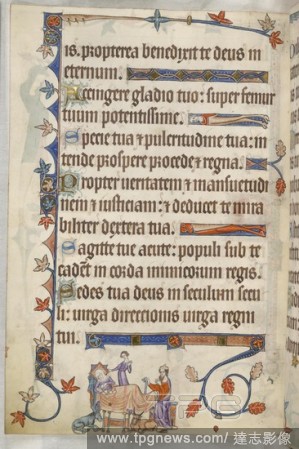 is. propterea benedixit te deus in
eternum.
Accingere gladio tuo: super femur
tuum potentissime.
Specie tua & pulcritudine tua: in
tende prospere procede & regna.
Propter ueritatem & mansuetudi
nem & iusticiam: & deducet te mira
biliter dextera tua.
Sagitte tue acute: populi sub te
cadent in corda inimicorum regis.
Sedes tua deus in seculum secu
li: uirga direcionis uirga regni
tui.
www.tpgnews.com / 達志影像